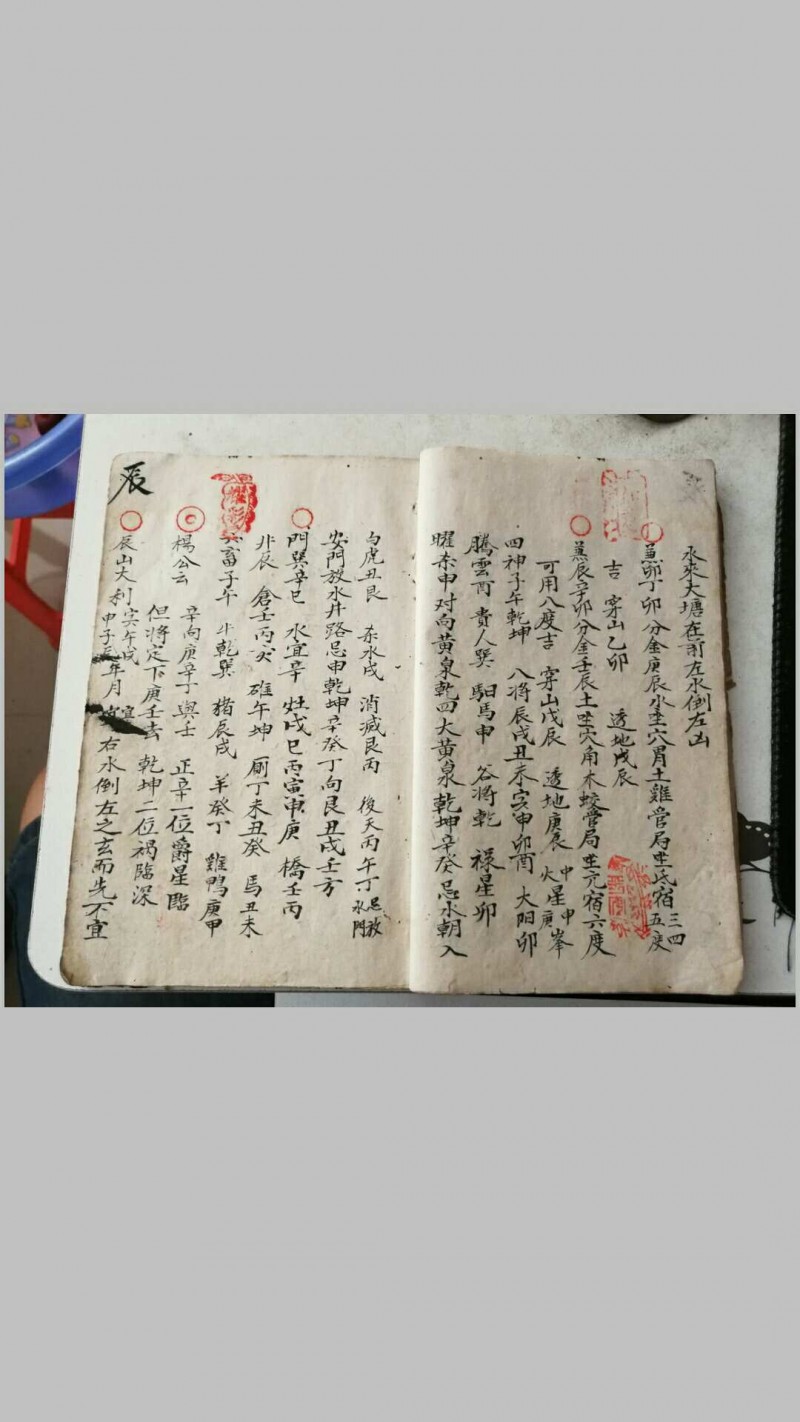 水來大塘在前左水倒左凶
兼卯丁卯分金庚辰水坐穴胃土雞管局坐氐宿三四五度
吉 穿山乙卯 透地戊辰
兼辰辛卯分金壬辰土坐穴角木蛟管局坐亢宿六度
可用八度吉 穿山戊辰 透地庚辰 中火星申庚峯
四神子午乾坤 八將辰戌丑未寅申卯酉 大陽卯
騰雲酉 貴人巽 馹馬申 谷將乾 祿星卯
曜杀申对向黃泉乾四大黃泉乾坤辛癸忌水朝入
白虎丑艮 杀水戌 消滅艮丙 後天丙午丁忌放水門
安門放水井路忌申乾坤辛癸丁向艮丑戌壬方
門巽辛巳 水宜辛 灶戌巳丙寅申庚 橋壬丙
非辰 倉壬丙亥 碓午坤 厠丁未丑癸 馬丑未
六畜子午 牛乾巽 猪辰戌 羊癸丁 雞鴨庚甲
楊公云 辛向庚辛丁與壬 正辛一位爵星臨
但將定下庚壬去 乾坤二位禍臨深
辰
辰山大利寅午戌申子辰年月 宜右水倒左之玄而先不宜